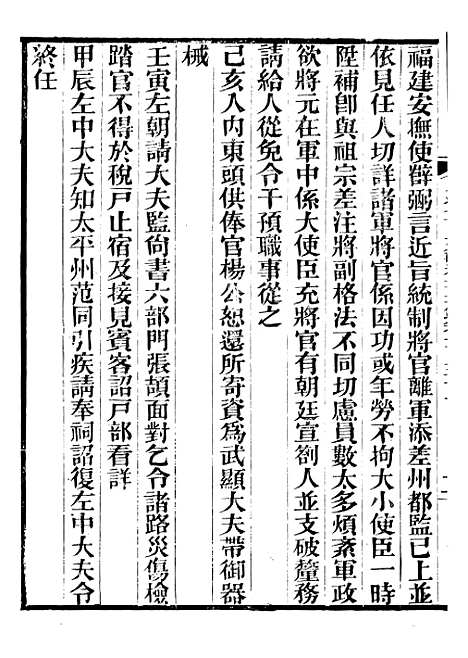 福建安撫使薛弼言近旨統制將官離軍添差州都監已上並
依見任人切詳諸軍將官係因功或年勞不拘大小使臣一時
陞補卽與祖宗差注將副格法不同切慮員數太多煩紊軍政
欲將元在軍中係大使臣充將官有朝廷宣劄人並支破釐務
請給人從免令干預職事從之
己亥入内東頭供俸官楊公恕還所寄資爲武顯大夫帶御器
械
壬寅左朝請大夫監尙書六部門張頡面對乞令諸路災傷檢
踏官不得於稅戸止宿及接見賓客詔戸部看詳
甲辰左中大夫知太平州范同引疾請奉祠詔復左中大夫令
終任